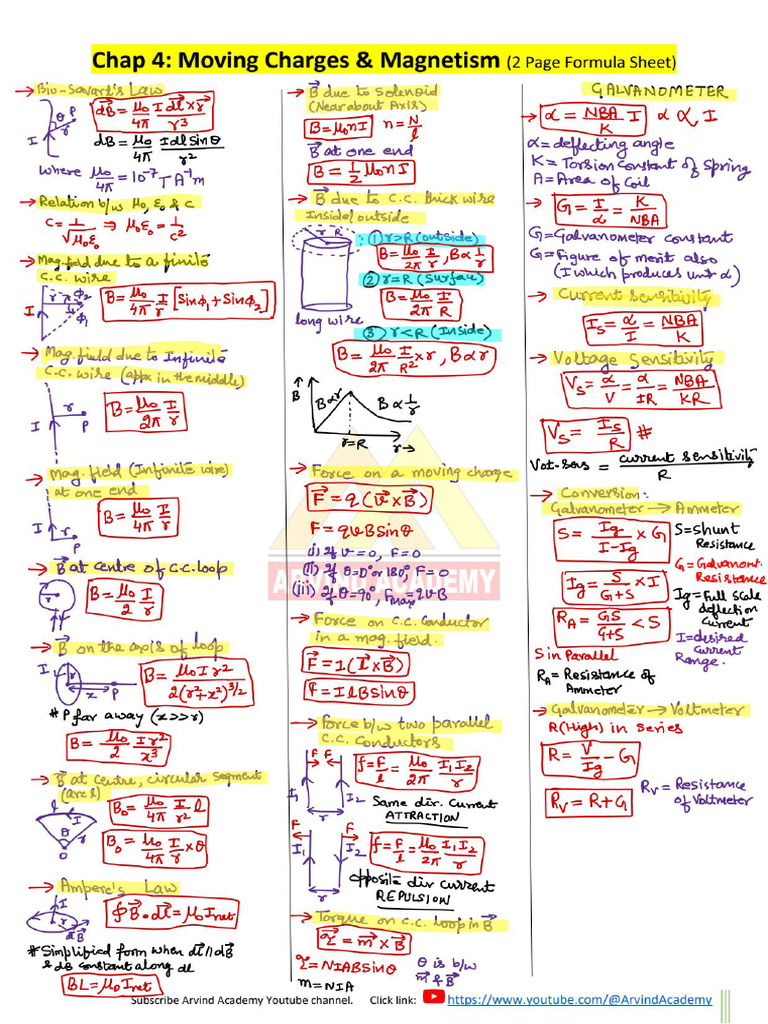 Chap 4: Moving Charges & Magnetism (2 Page Formula Sheet)
→ Bio-Savart's Law
I θ P r
dB⃗ = μ₀/4π I dl⃗ × r⃗ / r³
dB = μ₀/4π I dl sinθ / r²
where μ₀/4π = 10⁻⁷ T A⁻¹ m
→ Relation b/w μ₀, ε₀ & c
c = 1/√μ₀ε₀ ⇒ μ₀ε₀ = 1/c²
→ Mag. field due to a finite
C.C. wire
I r φ₂ φ₁
B = μ₀/4π I/r [Sinφ₁ + Sinφ₂]
→ Mag. field due to Infinite
C.C. wire (appx in the middle)
I r P
B = μ₀/2π I/r
→ Mag. field (Infinite wire)
at one end
I r P
B = μ₀/4π I/r
→ B⃗ at centre of C.C. loop
r I
B = μ₀/2 I/r
→ B⃗ on the axis of loop
I r x P
B = μ₀ I r² / 2(r²+x²)^3/2
# P far away (x>>r)
B = μ₀/2 I r²/x³
→ B⃗ at centre, circular segment
(arc l)
l I θ r O
B₀ = μ₀/4π I/r² l
B₀ = μ₀/4π I/r × θ
→ Ampere's Law
I r dB⃗
∮ B⃗ • dl⃗ = μ₀ Inet
# Simplified form when dl⃗ ∥ dB⃗
& dB constant along dl
BL = μ₀ Inet
→ B⃗ due to Solenoid
(Near about Axis)
B = μ₀ n I n = N/l
B⃗ at one end
B = 1/2 μ₀ n I
→ B⃗ due to C.C. thick wire
Inside/outside
r R
long wire
: ① r>R (outside)
B = μ₀/2π I/r, B ∝ 1/r
② r=R (Surface)
B = μ₀/2π I/R
③ r<R (Inside)
B = μ₀/2π I/R² × r, B ∝ r
↑ B B∝r B ∝ 1/r
r=R r→
→ Force on a moving charge
F⃗ = q (v⃗ × B⃗)
F = qvBsinθ
(i) if v = 0, F = 0
(ii) if θ=0° or 180° F = 0
(iii) if θ=90°, Fmax = qvB
ARVIND ACADEMY
→ Force on C.C. conductor
in a mag. field.
F⃗ = I (l⃗ × B⃗)
F = I l B sinθ
→ Force b/w two parallel
C.C. Conductors
F F I₁ I₂ r
f = F/l = μ₀/2π I₁ I₂/r
Same dir. Current
ATTRACTION
F F I₁ I₂ r
f = F/l = μ₀/2π I₁ I₂/r
Opposite dir current
REPULSION
→ Torque on C.C. loop in B⃗
τ⃗ = m⃗ × B⃗
τ = NIABsinθ θ is b/w
m = NIA m⃗ & B⃗
GALVANOMETER
→ α = NBA/K I α ∝ I
α = deflecting angle
K = Torsion constant of Spring
A = Area of Coil
→ G = I/α = K/NBA
G = Galvanometer constant
G = Figure of merit also
(I which produces unit α)
→ Current Sensitivity
Is = α/I = NBA/K
→ Voltage Sensitivity
Vs = α/V = α/IR = NBA/KR
Vs = Is/R #
Vot-sens = current sensitivity/R
→ Conversion:
Galvanometer → Ammeter
S = Ig/I-Ig × G
S = Shunt
Resistance
G = Galvanont.
Resistance
Ig = S/G+S × I
Ig = Full Scale
deflection
Current
RA = GS/G+S < S
I = desired
Current
Range.
S in Parallel
RA = Resistance of
Ammeter
→ Galvanometer → Voltmeter
R(High) in Series
R = V/Ig - G
RV = R+G
RV = Resistance
of Voltmeter
Subscribe Arvind Academy Youtube channel. Click link: https://www.youtube.com/@ArvindAcademy